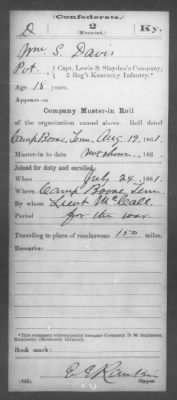 (Confederate.)
D 2 Ky.
(Mounted.)
Wm S. Davis
Pvt., Capt. Lewis S. Slayden's Company,
2 Reg't Kentucky Infantry.*
Age 18 years.
Appears on
Company Muster-in Roll
of the organization named above. Roll dated
Camp Boone, Tenn, Aug 19, 1861.
Muster-in to date not shown, 186 .
Joined for duty and enrolled:
When July 24, 1861.
Where Camp Boone, Tenn
By whom Lieut McCall
Period for the war
Traveling to place of rendezvous 150 miles.
Remarks:
*This company subsequently became Company
Book mark:
Copyist.